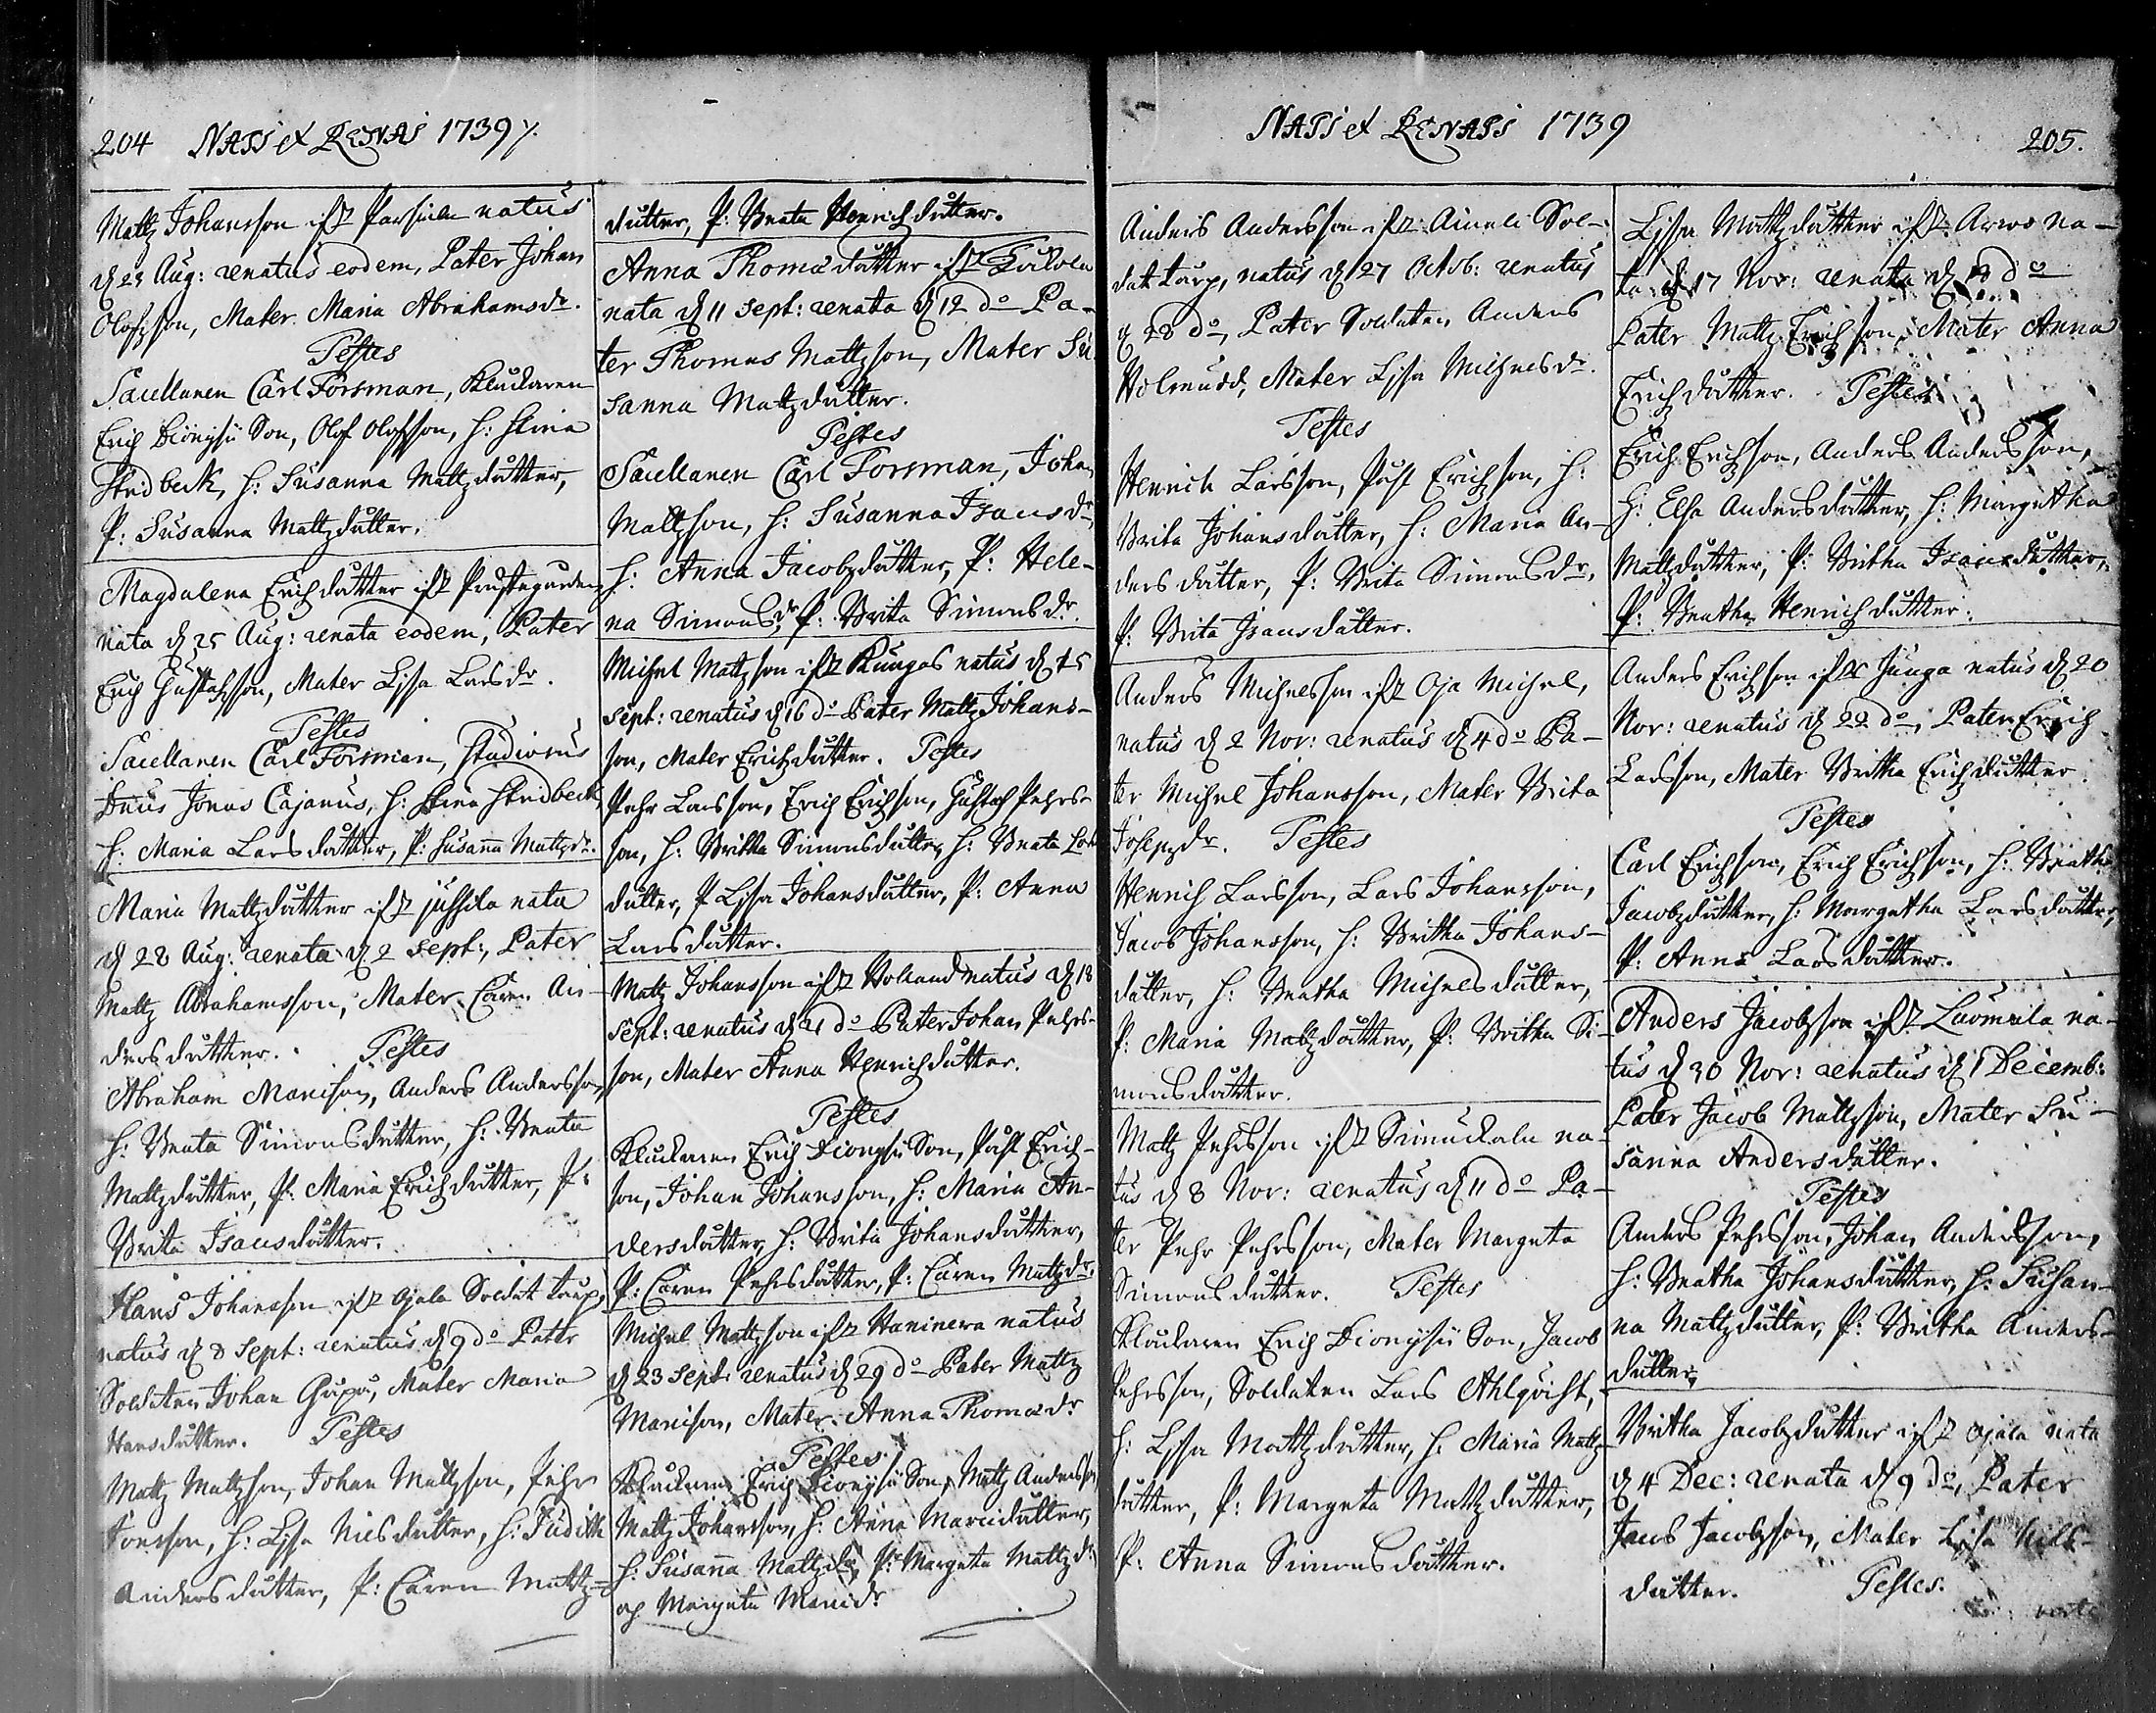 204 NATI et RENATI 1739
Mattz Johansson ifr. Parsiala natus
d 23 Aug: renatus eodem, Pater Johan
Olofzson, Mater Maria Abrahamsdr.
Testes
Sacellanen Carl Forsman, Kluckaren
Erich Dionysii Son, Olof Olofsson, h: Stina
Stridbeck, h: Susanna Mattzdutter,
P: Susanna Mattzdutter.
Magdalena Erichdutter ifr Prästegården
nata d 25 Aug: renata eodem, Pater
Erich Gustafzson, Mater Lisa Larsdr.
Testes
Sacellanen Carl Forsman, Studiosus
Dnus Jonas Cajanus, h: Stina Stridbeck
h: Maria Larsdutter, P: Susana Mattzdr.
Maria Mattzdutter ifr Jussila nata
d 28 Aug: renata d 2 Sept:, Pater
Mattz Abrahamsson, Mater Caren An-
dersdutter. Testes
Abraham Manison, Anders Andersson,
h: Beata Simonsdutter, h: Beata
Mattzdutter, P: Maria Erichdutter, P:
Brita Isacsdutter.
Hans Johansson ifr Ojala Soldat torp,
natus d 8 Sept: renatus d 9 do Pater
Soldaten Johan Gåpå, Mater Maria
Hansdutter. Testes
Mattz Mattzson, Johan Mattzson, Pehr
Jonsson, h: Lisa Nilsdutter, h: Judith
Andersdutter, P: Caren Mattz=
dutter, P: Beata Henrichdutter.
Anna Thomædutter ifr
nata d 11 Sept: renata d 12 do Pa-
ter Thomas Mattzson, Mater Su-
sanna Mattzdutter.
Testes
Sacellanen Carl Forsman, Johan
Mattzson, h: Susanna Isacsdr,
h: Anna Jacobzdutter, P: Hele-
na Simonsdr, P: Brita Simonsdr.
Michel Mattzson ifr Kungas natus d 15
Sept: renatus d 16 do Pater Mattz Johans-
son, Mater Erichdutter. Testes
Pehr Larsson, Erich Erichson, Gustaf Pehrs-
son, h: Britha Simonsdutter, h: Beata Lars
dutter, P Lisa Johansdutter, P: Anna
Larsdutter.
Mattz Johansson ifr Holland natus d 18
Sept: renatus d 21 do Pater Johan Pehrs-
son, Mater Anna Henrichdutter.
Testes
Kluckaren Erich Dionysii Son, Påhl Erich-
son, Johan Johansson, h: Maria An-
dersdutter, h: Brita Johansdutter,
P: Caren Pehrsdutter, P: Caren Mattzdr.
Michel Mattzson ifr Haninewa natus
d 23 Sept: renatus d 29 do Pater Mattz
Manison, Mater Anna Thomædr
Testes
Kluckaren Erich Dionysii Son, Mattz Andersson
Mattz Johansson, h: Anna Manidutter,
h: Susana Mattzdr, P: Margeta Mattzdr
och Margeta Manidr
NATI et RENATI 1739 205.
Anders Andersson ifr Aineli Sol-
dat torp, natus d 27 Octob: renatus
d 28 do, Pater Soldaten Anders
Holmudd, Mater Lisa Michelsdr.
Testes
Henrich Larsson, Påhl Erichson, h:
Brita Johansdutter, h: Maria An-
dersdutter, P: Brita Simonsdr,
P: Brita Isacsdutter.
Anders Michelsson ifr Oja Michel,
natus d 2 Nov: renatus d 4 do Pa-
ter Michel Johansson, Mater Brita
Josepzdr. Testes
Henrich Larsson, Lars Johansson,
Jacob Johansson, h: Britha Johans-
dutter, h: Beatha Michelsdutter,
P: Maria Mattzdutter, P: Britha Si-
monsdutter.
Mattz Pehrsson ifr Simuckala na-
tus d 8 Nov: renatus d 11 do Pa-
ter Pehr Pehrsson, Mater Margeta
Simonsdutter. Testes
Klockaren Erich Dionysii Son, Jacob
Pehrsson, Soldaten Lars Ahlqvist,
h: Lisa Mattzdutter, h: Maria Mattz-
dutter, P: Margeta Mattzdutter,
P: Anna Simonsdutter.
Lisa Mattzdutter ifr Arwo na-
ta d 17 Nov: renata d 18 do
Pater Mattz Erichson, Mater Anna
Erichdutter. Testes
Erich Erichson, Anders Andersson,
h: Elsa Andersdutter, h: Margetha
Mattzdutter, P: Britha Isacsdutter,
P: Beatha Henrichdutter.
Anders Erichson ifr Junga natus d 20
Nov: renatus d 22 do, Pater Erich
Larsson, Mater Britha Erichdutter.
Testes
Carl Erichson, Erich Erichson, h: Beatha
Jacobzdutter, h: Margetha Larsdutter,
P: Anna Larsdutter.
Anders Jacobzson ifr Luomala na-
tus d 30 Nov: renatus d 1 Decemb:
Pater Jacob Mattzson, Mater Su-
sanna Andersdutter.
Testes
Anders Pehrsson, Johan Andersson,
h: Beatha Johansdutter, h: Susan-
na Mattzdutter, P: Britha Anders-
dutter,
Britha Jacobzdutter ifr Ojala nata
d 4 Dec: renata d 9 do, Pater
Jacob Jacobzson, Mater Lisa Nils-
dutter. Testes.
verte